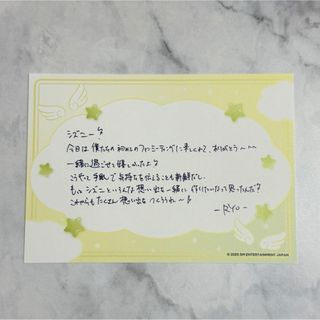 シズニー♪
今日は僕たちの初めてのファンミーティングに来てくれて、ありがとう〜^^
一緒に過ごせて嬉しかったよ♪
こうやって手紙で気持ちを伝えることも新鮮だし、
もっとシズニといろんな想い出を一緒に作りたいなって思ったんだ?
これからもたくさん想い出をつくろうね〜♪
- RYO -
© 2025 SM ENTERTAINMENT JAPAN